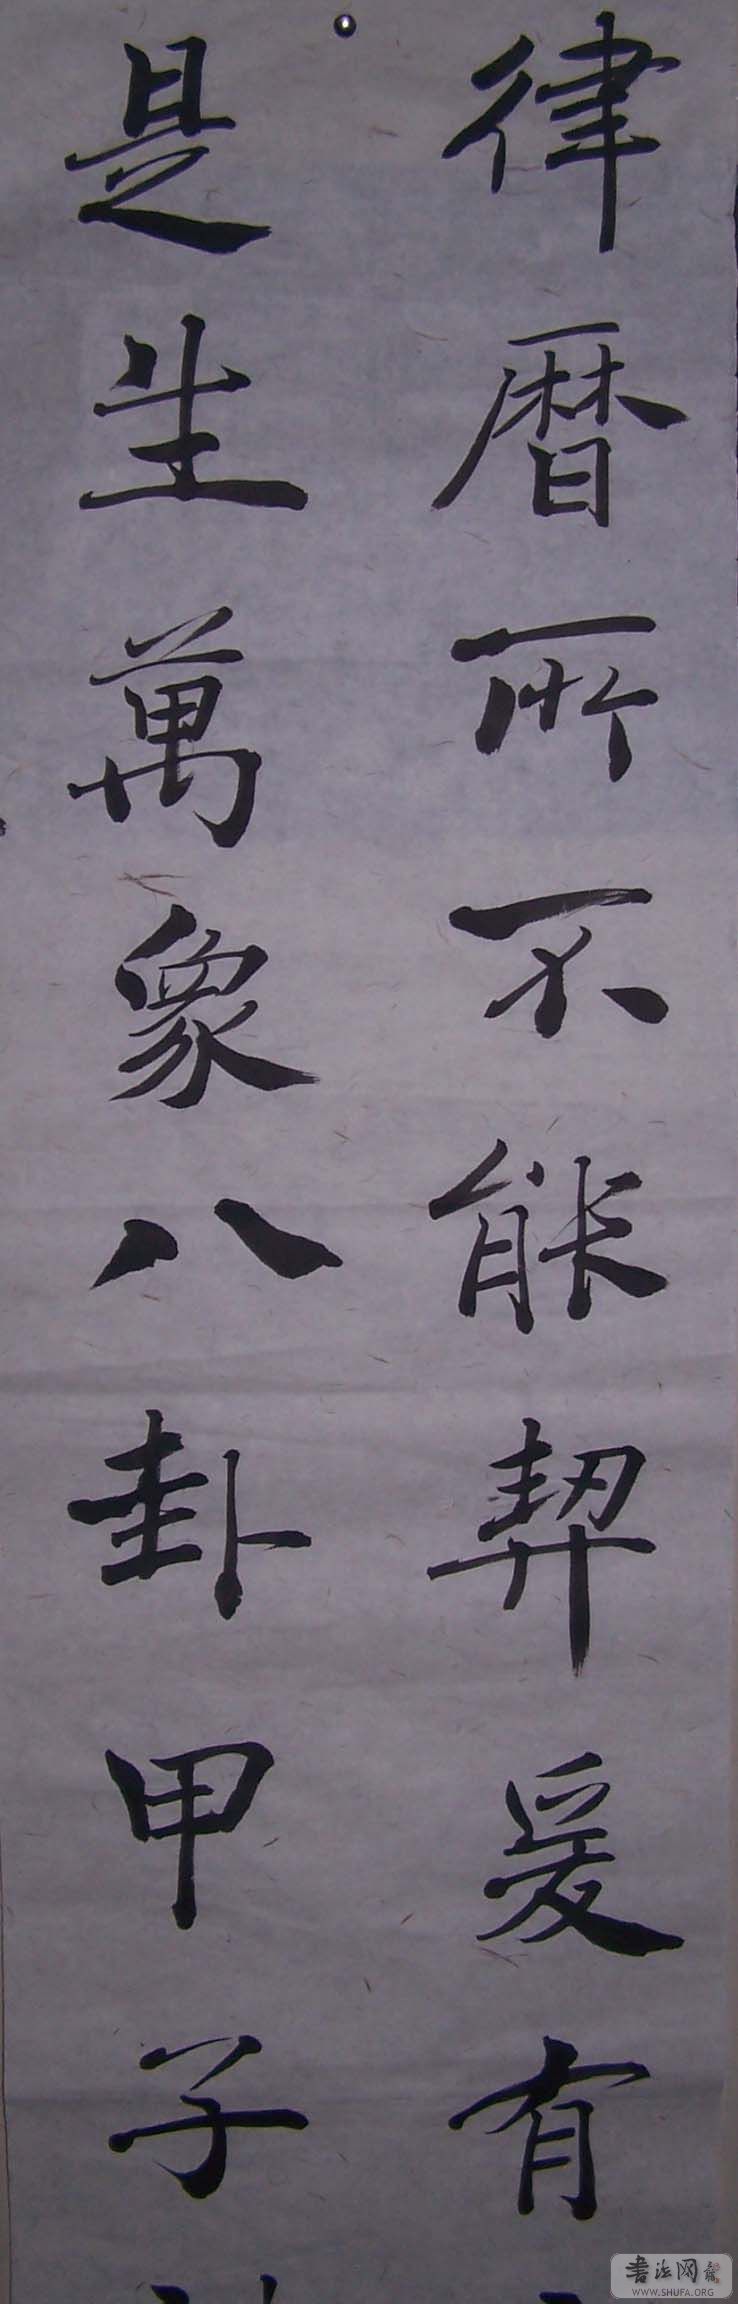 律暦所不能契爰有
是生萬象八卦甲子
書法网
WWW.SHUFA.ORG